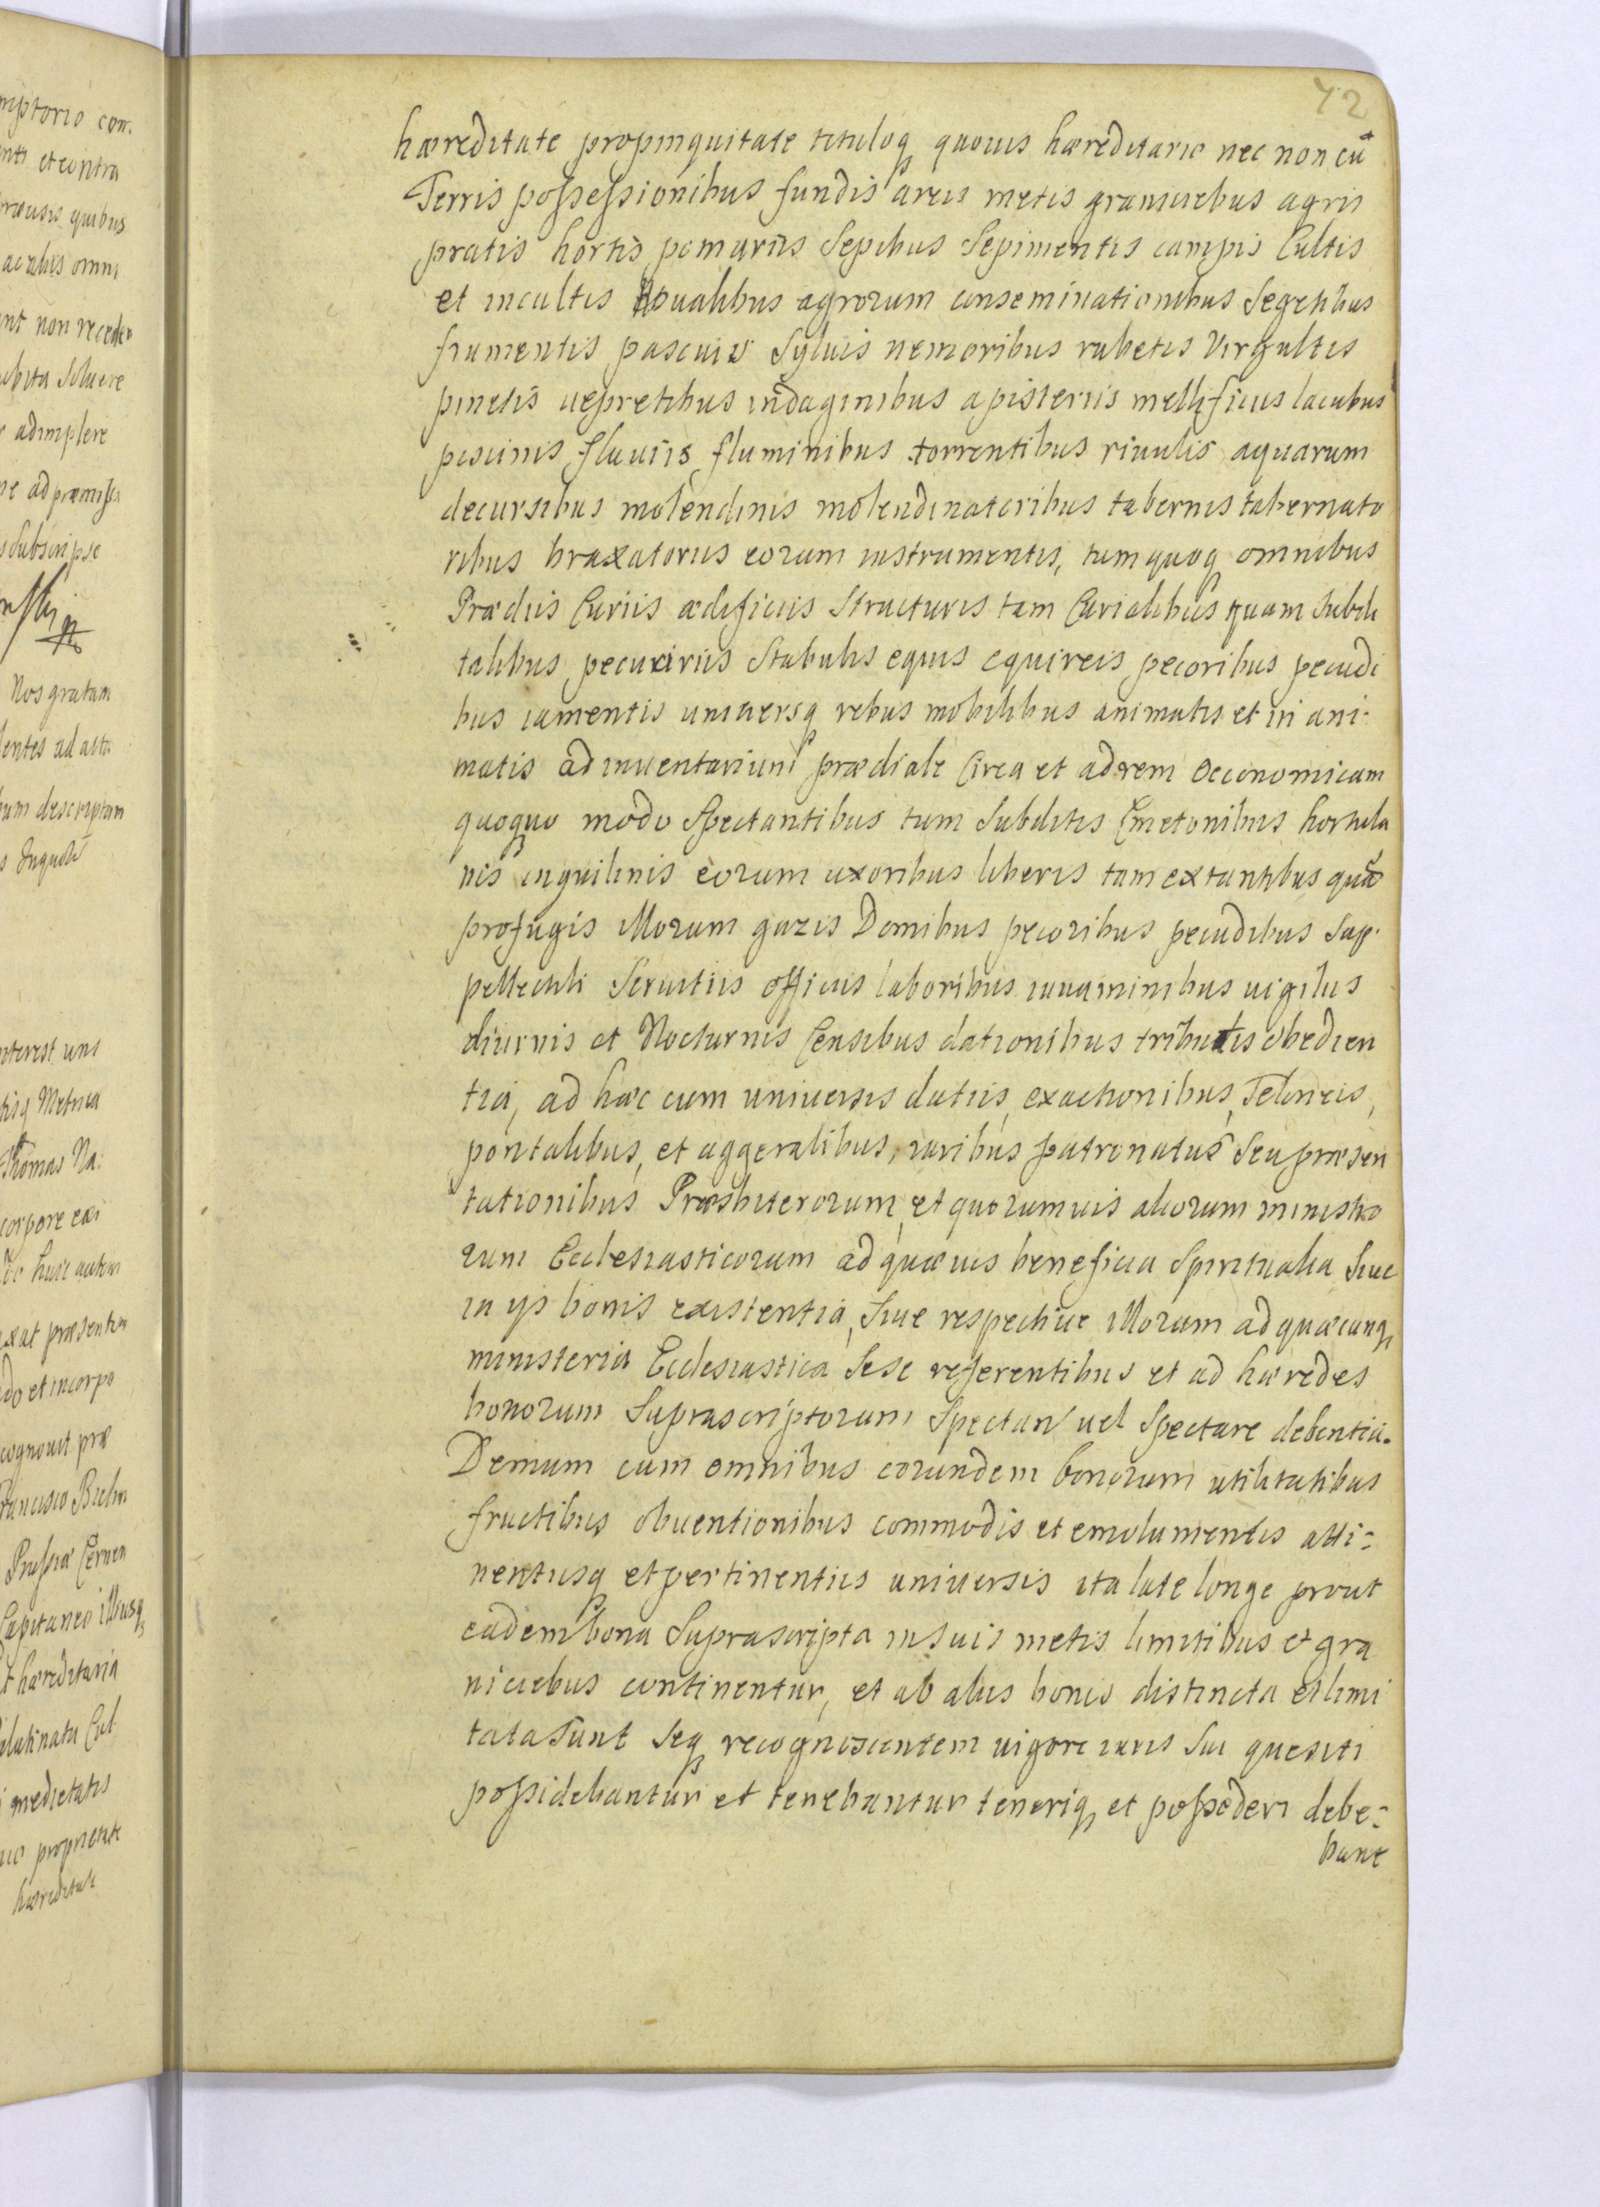 42
hæreditate propinquitate tituloq quouis hæreditario nec non cũ
Terris possessionibus fundis areis metis graniciebus agris
pratis hortis pomariis Sepibus Sepimentis campis Cultis
et incultis Noualibus agrorum conseminationibus Segetibus
frumentis pascuis Syluis nemoribus rubetis Virgultis
pinetis uepretibus indaginibus apisteriis mellificiis lacubus
piscinis fluuiis fluminibus torrentibus riuulis aquarum
decursibus molendinis molendinatoribus tabernis tabernato
ribus braxatoriis eorum instrumentis, tum quoq omnibus
Prædiis Curiis ædificiis Structuris tam Curialibus quam Subdi
talibus pecuariis Stabulis equis equireis pecoribus pecudi
bus iumentis uniuersq rebus mobilibus animatis et in ani-
matis ad inuentarium prædiale Circa et ad rem Oeconomicam
quoquo modo Spectantibus tum Subditis Cmetonibus hortula
nis inquilinis eorum uxoribus liberis tam extantibus quã
profugis Illorum gazis Domibus pecoribus pecudibus Sup-
pellectili Seruitiis officiis laboribus iuuaminibus uigiliis
diurnis et Nocturnis Censibus dationibus tributis obedien
tia, ad hæc cum uniuersis datiis, exactionibus, Teloneis,
pontalibus, et aggeralibus, iuribus patronatus Seu præsen
tationibus Præsbiterorum, et quorumuis aliorum ministro
rum Ecclesiasticorum ad quæuis beneficia Spiritualia Siue
in ijs bonis existentia, Siue respectiue Illorum ad quæcunq
ministeria Ecclesiastica Sese referentibus et ad hæredes
bonorum Suprascriptorum Spectan uel Spectare debentia.
Demum cum omnibus eorundem bonorum utilitatibus
fructibus obuentionibus commodis et emolumentis atti-
nentiisq et pertinentiis uniuersis ita late longe prout
eadem bona Suprascripta in Suis metis limitibus et gra
niciebus continentur, et ab aliis bonis distincta et limi
tata Sunt Seq recognoscentem uigore iuris Sui quesiti
possidebantur et tenebantur teneriq et possideri debe-
bant